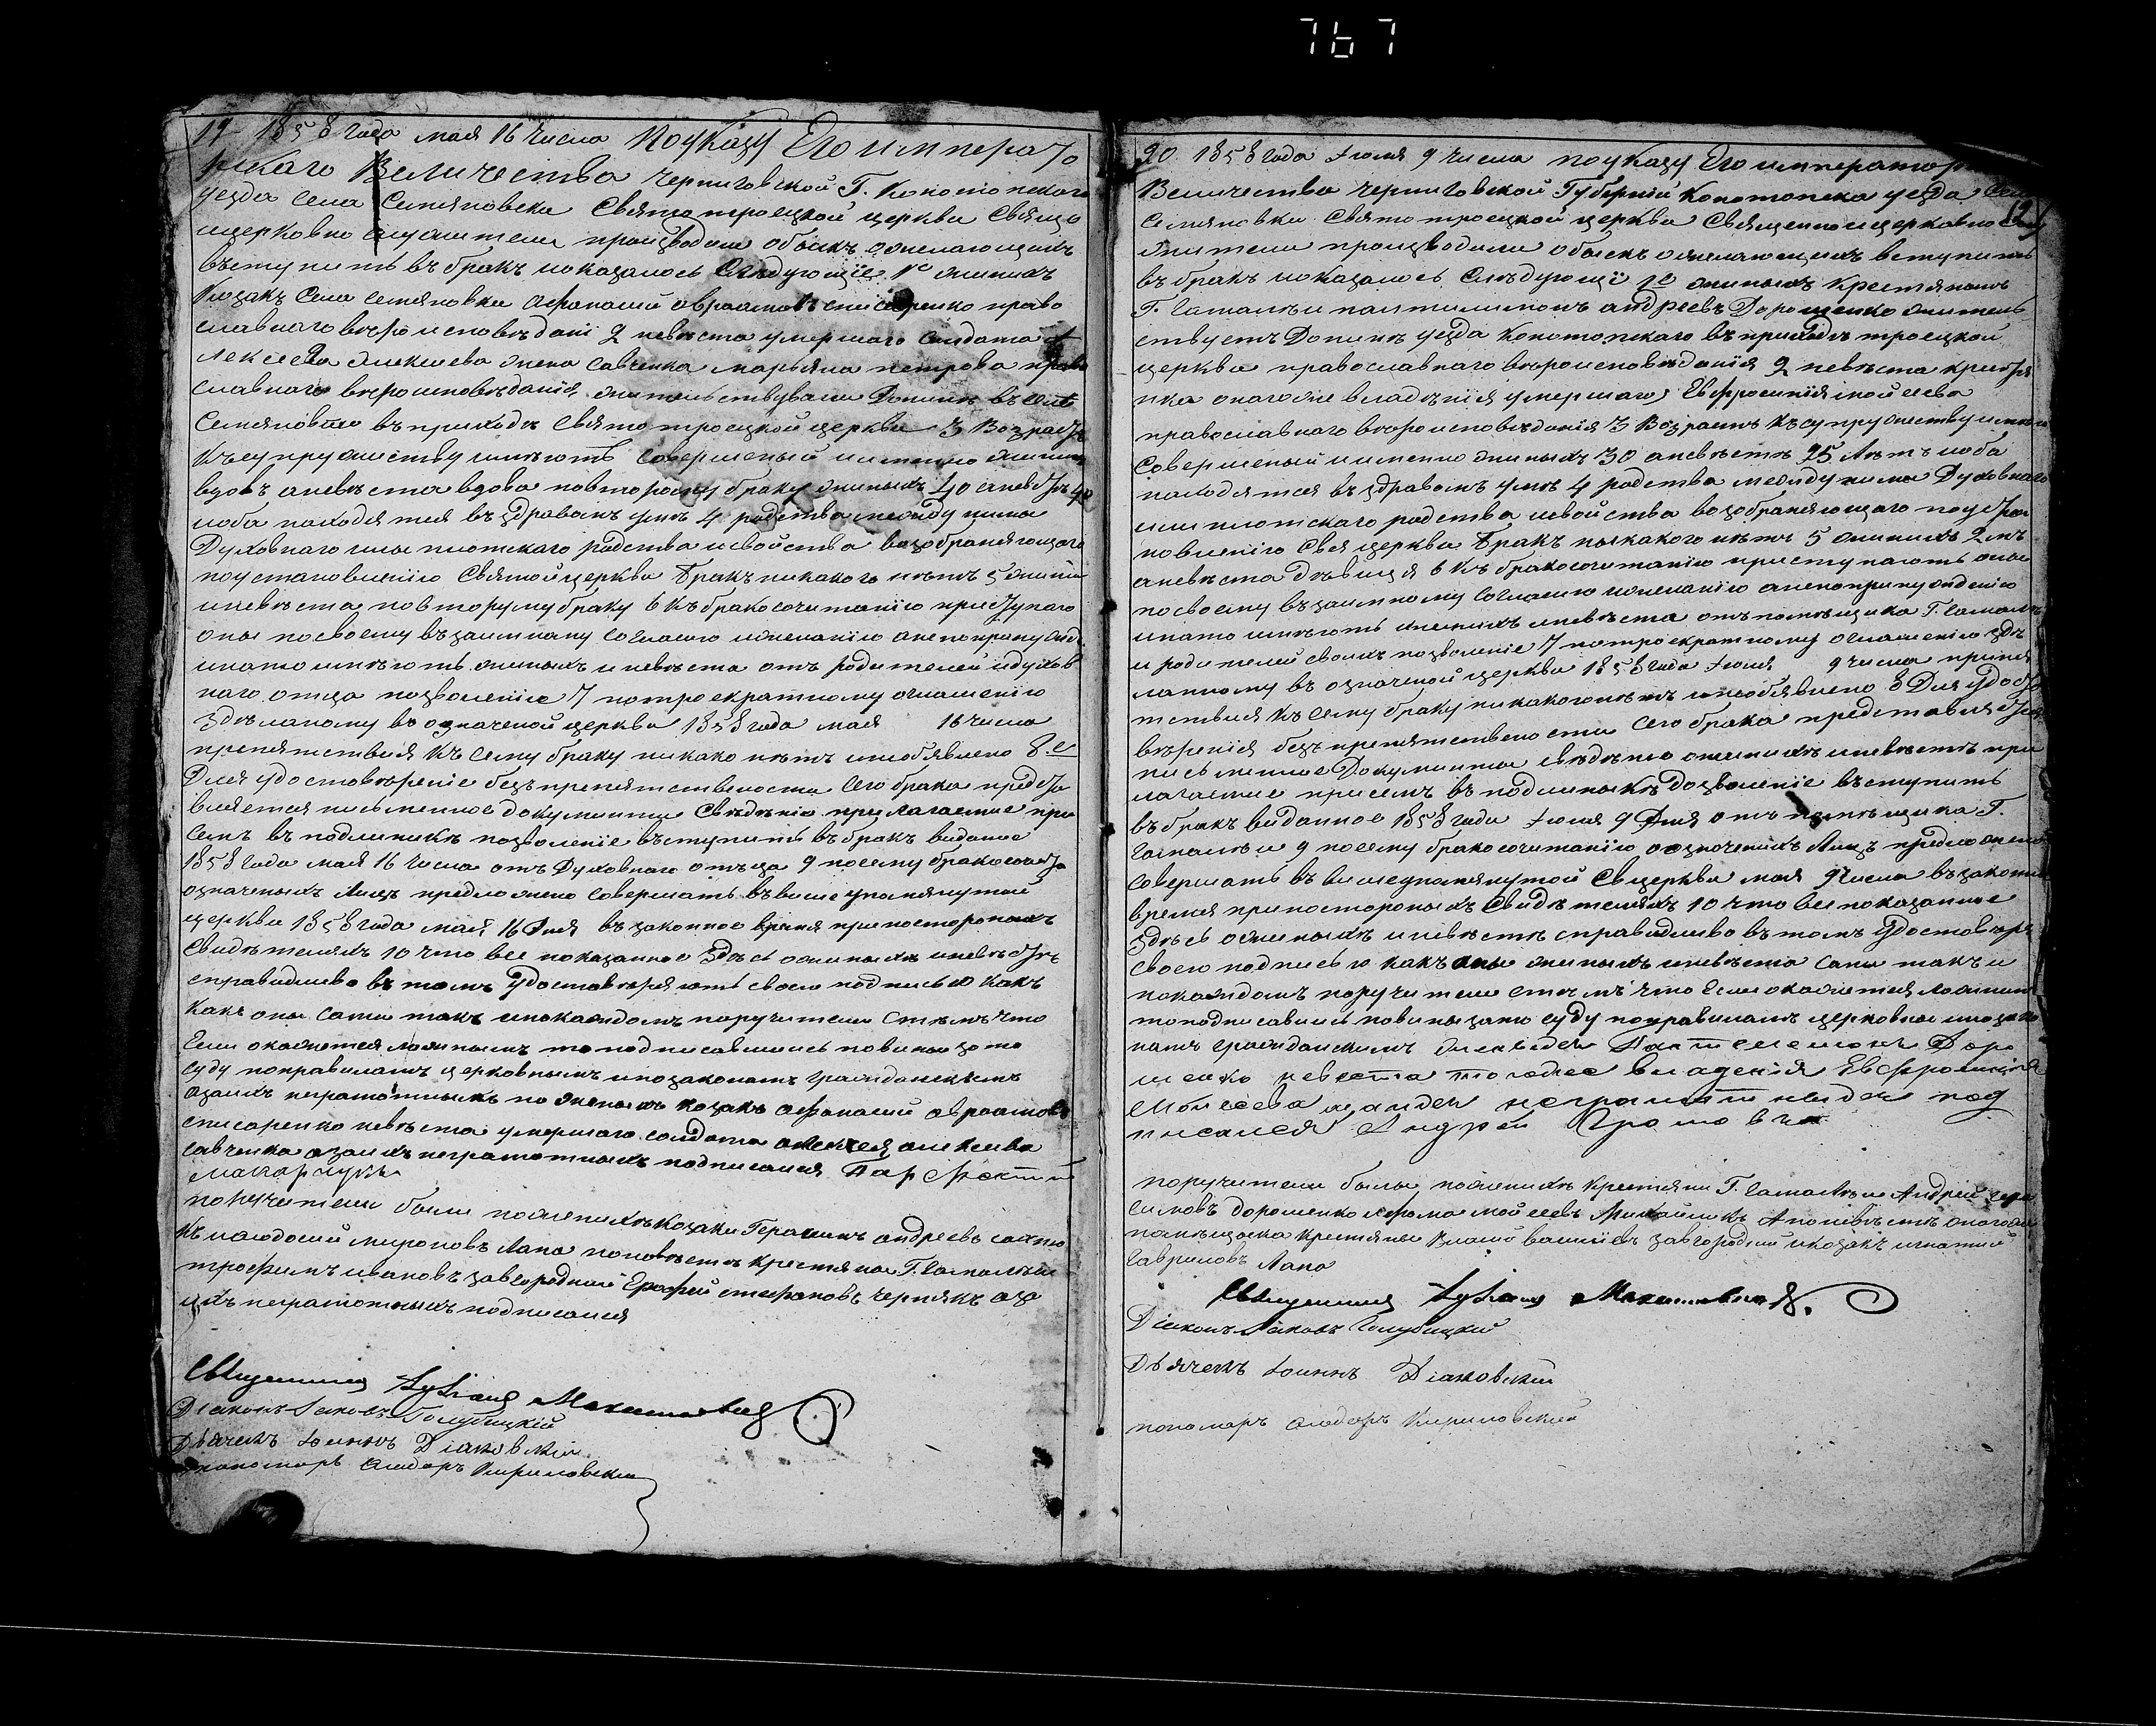 767
19 1858 года мая 16 числа По указу Его императо
рскаго Величества черниговской Г. Конотопскаго
уезда села Семяновки Святотроецкой церкви Свящо
церковно служители производили обыскъ ожелающихъ
въступить въ бракъ ио казалось Следующие 1е жинихъ
Козакъ Села семяновки афанасий авраамовъ списаренко право
славнаго вѣроисповѣдані 2 невѣста умершаго Солдата а
лексея алексиева жена савченка марьяна петрова право
славнаго вѣроисповѣдания жительствували Донинѣ въ селѣ
Семяновки въ приходѣ Святотроецкой церкви 3 Возрастъ
Къ супружеству имѣютъ совершеный именно жиних
вдовъ аневѣста вдова повторому браку жиныхъ 40 аневѣста 40
иоба находятся въ здравомъ умѣ 4 родства между ними
Духовнаго или плотскаго родства исвойства возобраняющаго
поустановлению Святой церкви бракъ никакого нѣтъ 5 жиних
иневѣста повторуму браку 6 къ бракосочитанию приступаю
оны посвоему възаимному согласию ижеланию анепопринужде
инато имѣютъ жиныхъ и невѣста отъ родителей идухов
наго отца позволению 7 потроекратному оглашению
здѣланому во означеной церкви 1858 года мая 16 числа
препятствия къ сему браку никако нѣтъ инеобявлено 8.е
Для удостовѣрение безъпрепятствености сего брака предста
вляется письменное документы Свѣдѣние прилагаемие при
семъ въ подлиникѣ позволение въступить въ бракъ виданое
1858 года мая 16 числа отъ Духовнаго отъца 9 посему бракосоче
означеныхъ лицъ предложено совершать въвише упомянутой
церкви 1858 года мая 16 дня въ законное время припостороныхъ
свидѣтеляхъ 10 что все показанное здѣсь ожиныхѣ иневѣстѣ
справидливо въ томъ удостовѣряютъ своею подписью какъ
какъ оны сами такъ ипокаждомъ поручители стѣмъ что
Если окажется ложнымъ то подписавшиесь повины зато
суду поправиламъ церковнымъ ипозаконамъ гражданскимъ
азаихъ неграмотныхъ по женыхѣ козакъ афанасий авраамов
списаренко невѣста умершаго солдата алексея алексиева
савченка азаихъ неграмотныхъ подписался Парфентий
Макарчукъ
поручители были поженихѣ Козаки Герасимъ андреевъ
Къ иагодосий мироновъ Лапа поневѣстѣ крестяне Г.
трофимъ ивановъ завгородний Ерофей стефановъ чернякъ аза
ихъ неграмотныхъ подписался
Священникъ
Диаконъ Iаковъ Голубицкий
Дьячекъ Iоаннъ Диаковский
пономаръ Федоръ Кириловский
20 1858 года июля 9 числа по указу Его императорс
Величества черниговской Губерний Конотопска уезда Села
Семяновки Святотроецкой церкви Священноицерковнослу
жители производили обыскъ ожелающихъ вступить
въ бракъ иоказалось Слѣдующи 1е жиныхъ Крестянинъ
Г. пантилимонъ андреевъ Дорошенко житель
ствуетъ Донинѣ уезда Конотопскаго въ приходѣ троецкой
церкви православнаго вѣроисповѣдания 2 невѣста крестя
нка онагоже владѣния умершаго Евфросиния мойсеева
православнаго вѣроисповѣдания 3 Возрастъ Къ супружеству имѣю
совершеный именно жиныхъ 30 аневѣстѣ 25 лѣтъ иоба
находятся въ здравомъ умѣ 4 родства между ними Духовнаго
или плотскаго родства исвойства возобраняющаго поуста
новлению Свея церкви бракъ ныкакого нѣтъ 5 жинихъ 2мъ
аневѣста дѣвица 6 къ бракосочитанию приступаютъ оны
посвоему въ заимному согласию ижеланию анепопринуждению
инато имѣютъ жинихъ иневѣста отъ помѣщика Г.
и родителей своихъ позволение 7 потроекратному оглашению здѣ
ланному въ означеной церкви 1858 года июля 9 числа препя
тствия къ сему браку никакого нѣтъ инеобявлено 8 Для удосто
вѣрения безъ препятствености сего брака представляется
писменние Документы свѣдѣние ожинихѣ иневѣстѣ при
лагаемие присемъ въ подлиныкѣ дозволение въступить
въ бракъ виданное 1858 года июля 9 Дня отъ помѣщика Г.
9 посему бракосочитанию означеныхъ лицъ предложено
совершать въ вишеупомянутой Св церкви мая 9 числа възакон
время припостороныхъ Свидѣтеляхъ 10 что все показанное
здѣсь ожиныхѣ иневѣстѣ справидливо въ томъ удостовѣря
своею подписью какъ оны жиныхъ иневѣста сами такъ и
покаждомъ поручители стѣмъ что Если окажется ложным
то подписавшись повины зато суду поправиламъ церковны ипозако
намъ гражданскимъ Пантелемонъ Доро
шенко невѣста тогожее владения Евфросиния
Мойсеева неграмотныхъ под
писался Андрей
поручители были поженихѣ крестяни Г. Андрей гера
симовъ дорошенко афома мойсеевъ апоневѣстѣ оногоже
помѣщика крестяны Власий васильевъ завгородний икозакъ игнатий
Гавриловъ Лапа
Священникъ
Диаконъ Iаковъ Голубицкий
Дьячекъ Iоаннъ Диаковский
пономаръ Федоръ Кириловский